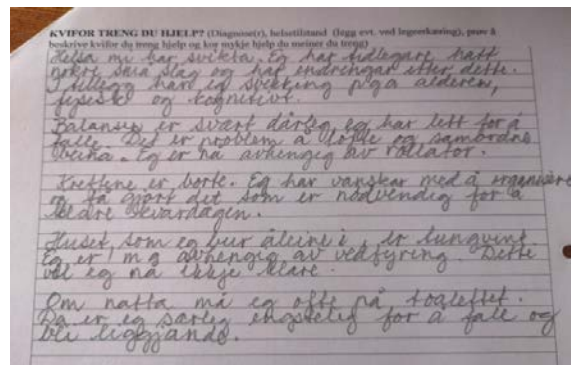 KVIFOR TRENG DU HJELP? (Diagnose(r), helsetilstand (legg evt. ved legeerklæring), prøv å
beskrive kvifor du treng hjelp og kor mykje hjelp du meiner du treng)
Helsa mi har svikta. Eg har tidlegare hatt
nokre små slag og har endringar etter dette.
I tillegg har eg svekking p.g.a alderen,
fysisk og kognitivt.
Balansen er svært dårleg eg har lett for å
falle. Det er problem å løfte og samordne
beina. Eg er nå avhengig av rollator.
Kreftene er borte. Eg har vanskar med å organisere
og få gjort det som er nødvendig for å
klare kvardagen.
Huset, som eg bur åleine i, er tungvint.
Eg er m.a avhengig av vedfyring. Dette
vil eg nå ikkje klare.
Om natta må eg ofte på toalettet.
Da er eg særleg engstelig for å fall og
bli liggjande.